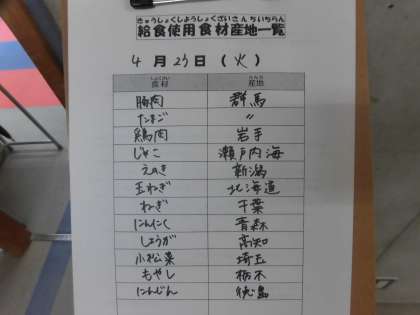 きゅうしょくしようしょくざいさんちいちらん
給食使用食材産地一覧
4月23日（火）
しょくざい さんち
食材 産地
豚肉 群馬
たまご 〃
鶏肉 岩手
じゃこ 瀬戸内海
えのき 新潟
玉ねぎ 北海道
ねぎ 千葉
にんにく 青森
しょうが 高知
小松菜 埼玉
もやし 栃木
にんじん 徳島